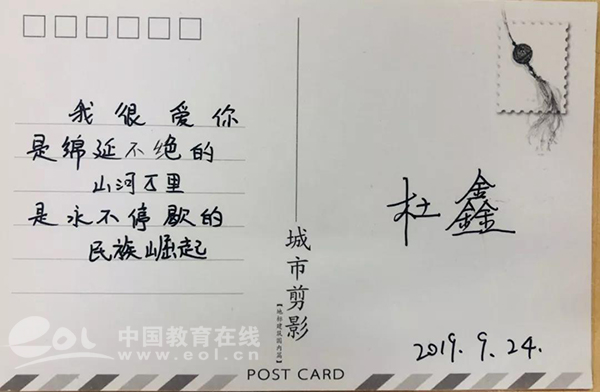 我很爱你
是绵延不绝的
山河万里
是永不停歇的
民族崛起
城市剪影
【地标建筑国内篇】
杜鑫
2019.9.24.
POST CARD
eol 中国教育在线
www.eol.cn